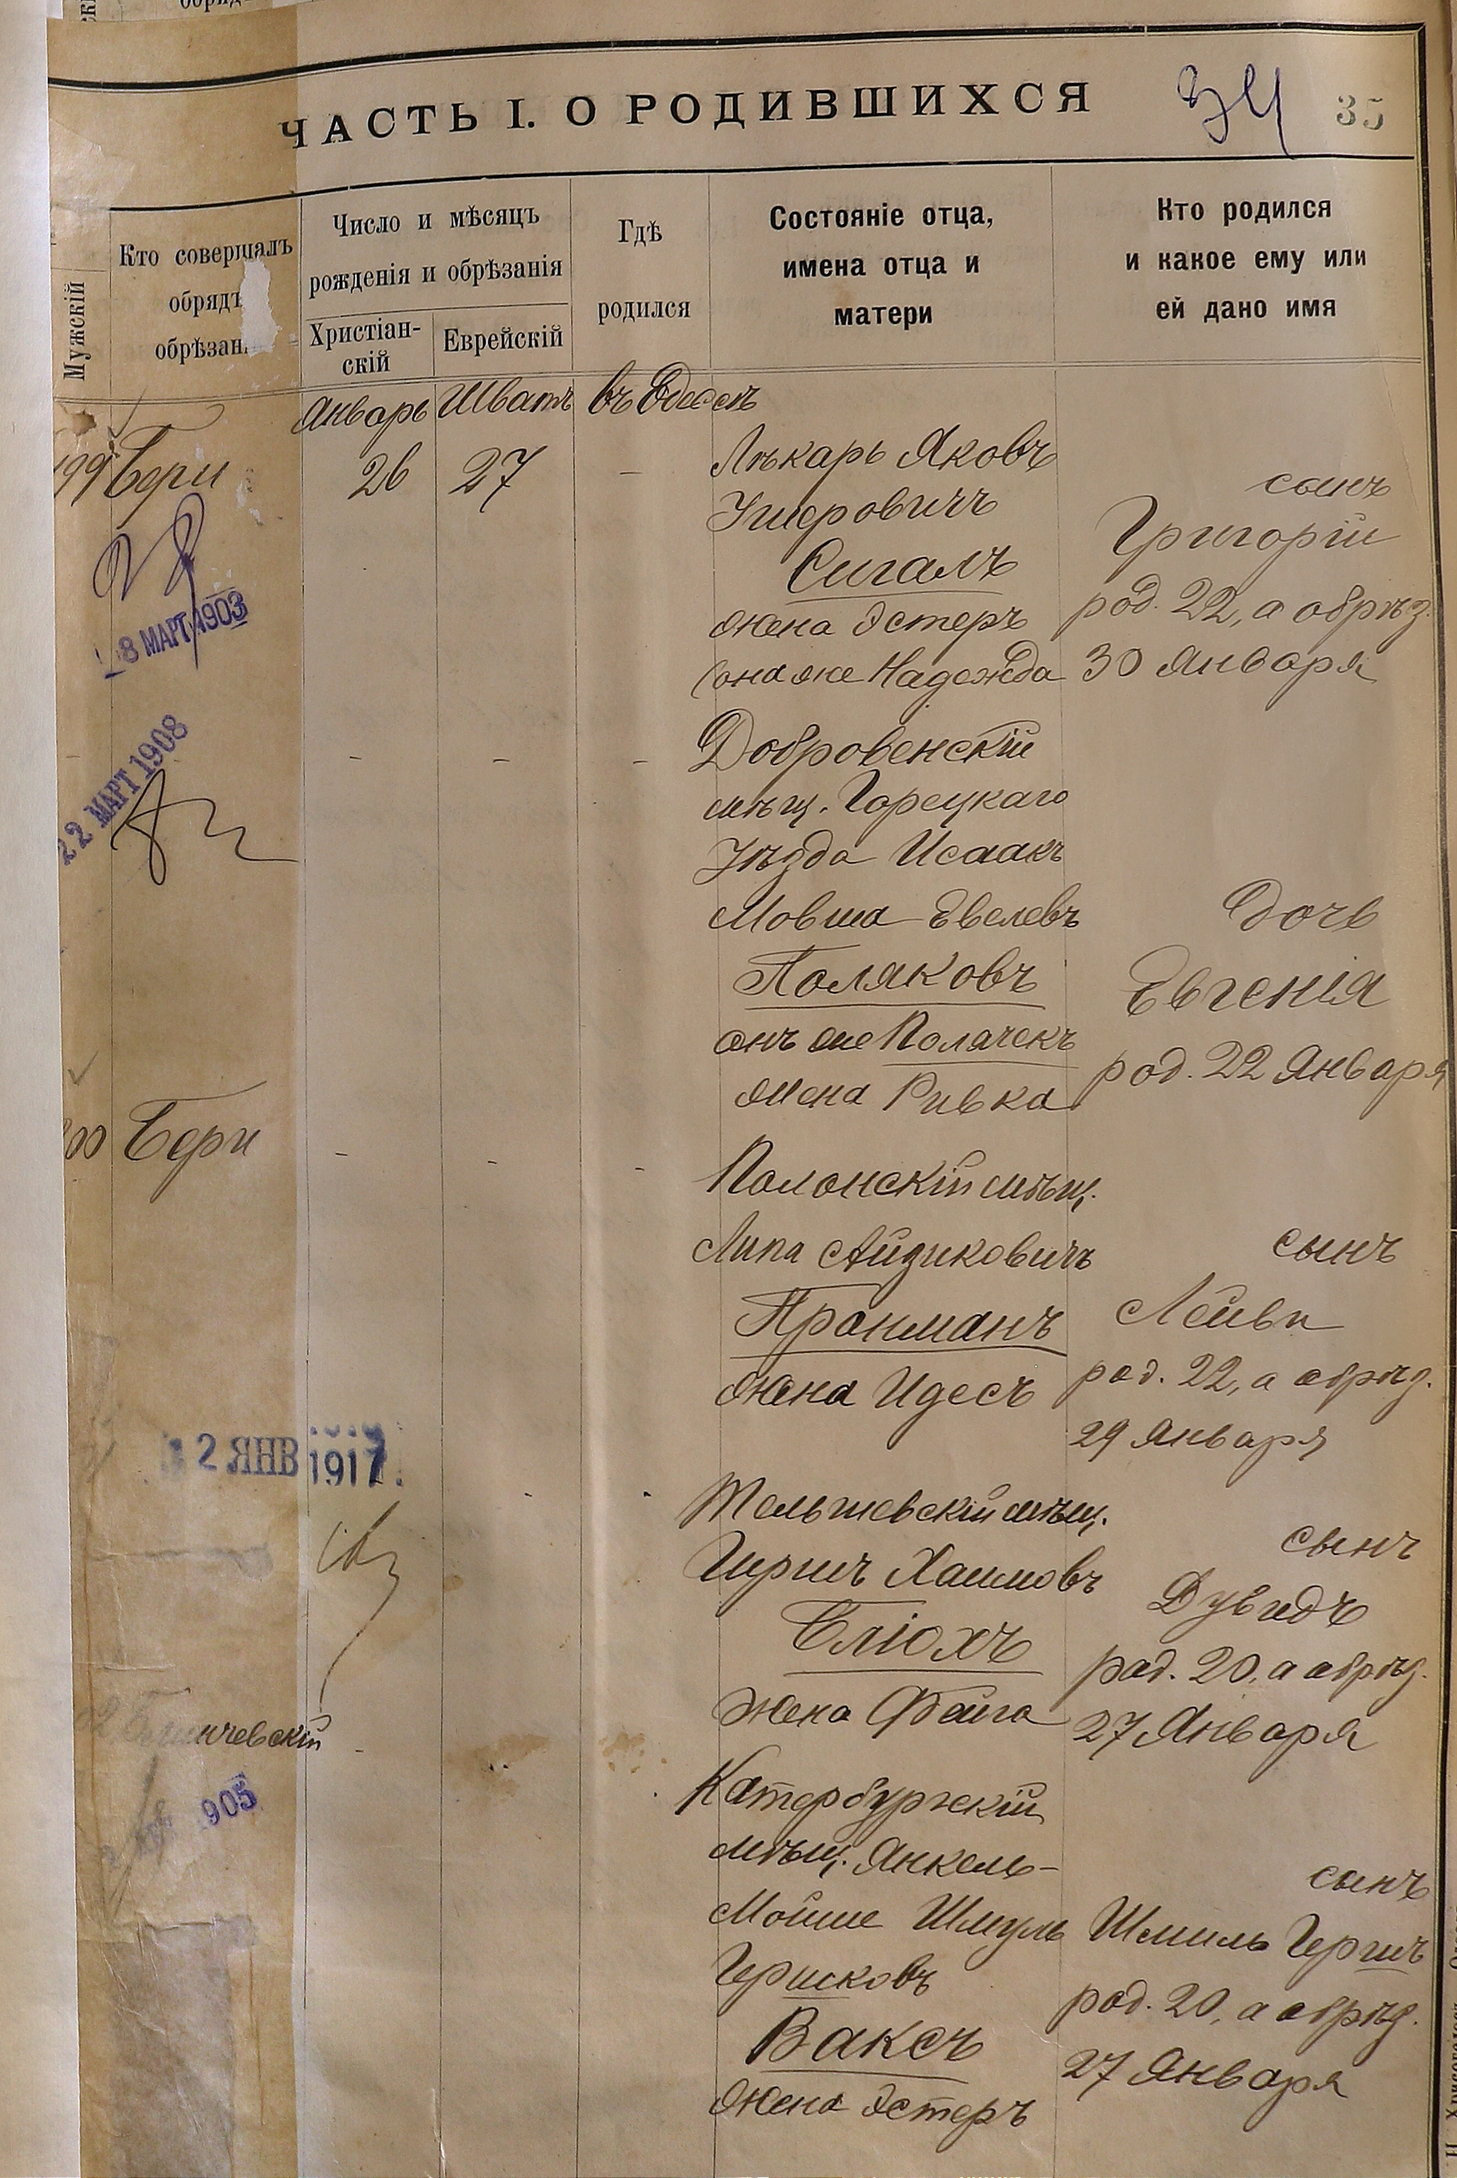 ЧАСТЬ I. О РОДИВШИХСЯ
34
35
Мужскій
Кто совершалъ
обрядъ
обрѣзан
Число и мѣсяцъ
рожденія и обрѣзанія
Христіан-
скій
Еврейскій
Гдѣ
родился
Состояніе отца,
имена отца и
матери
Кто родился
и какое ему или
ей дано имя
Январь Шватъ въ Одессѣ
199 Бери 26 27 –
Лѣкарь Яковъ
Ушеровичъ
Сигалъ
жена Эстеръ
(она же Надежда
сынъ
Григорій
род. 22, а обрѣз.
30 Января
8 МАРТ 1903
22 МАРТ 1908
– – –
Добровенскій
мѣщ. Горецкаго
Уѣзда Исаакъ
Мовша Евелевъ
Поляковъ
онъ же Полячекъ
жена Ривка
дочь
Евгенія
род. 22 Января
Бери – – –
Полонскій мѣщ.
Липа Айзиковичъ
Пронманъ
жена Идесъ
сынъ
Лейви
род. 22, а обрѣз.
29 Января
2 ЯНВ 1917.
Тельшевскій мѣщ.
Гиршъ Хаимовъ
Бліохъ
жена Фейга
сынъ
Дувидъ
род. 20, а обрѣз.
27 Января
905
Катербургскій
мѣщ. Янкель-
Мойше Шмуль
Гершковъ
Ваксъ
жена Эстеръ
сынъ
Шмиль Гершъ
род. 20, а обрѣз.
27 Января